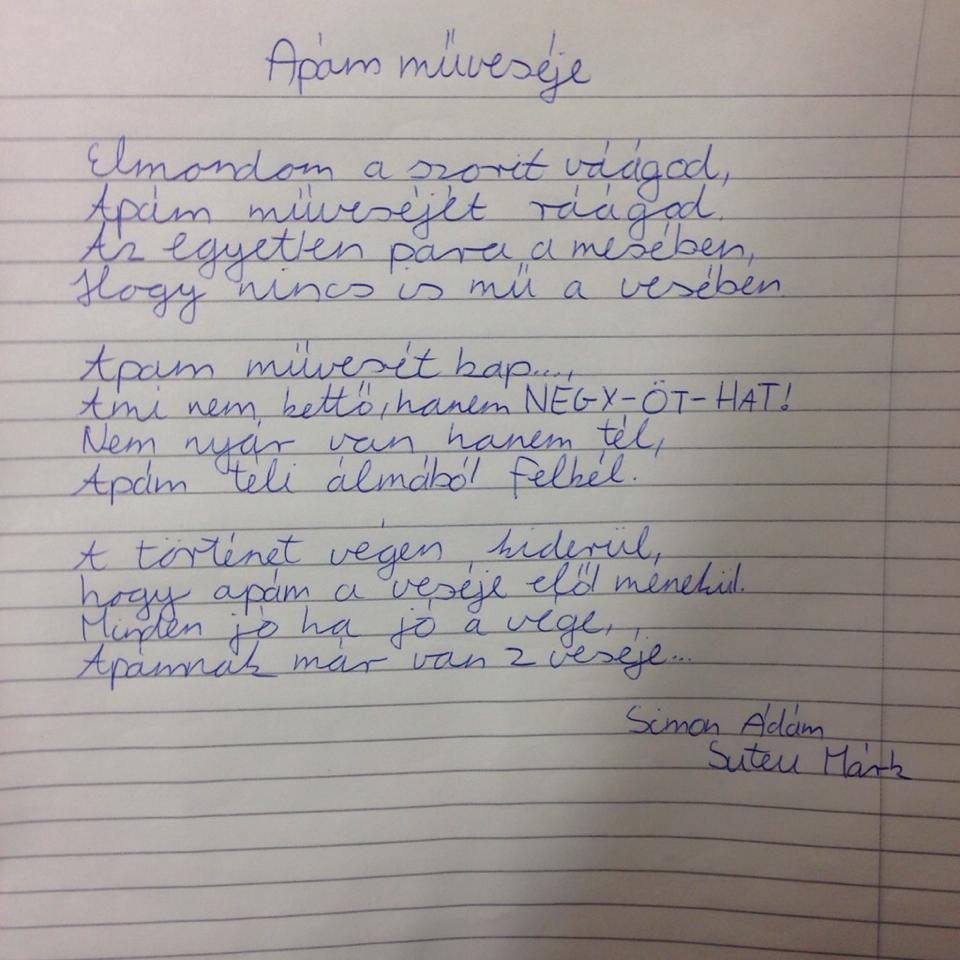 Apám műveséje
Elmondom a szorit váágod,
Apám műveséjét ráágod.
Az egyetlen para a mesében,
Hogy nincs is mű a vesében.
Apám művesét kap....,
Ami nem kettő, hanem NÉGY-ÖT-HAT!
Nem nyár van, hanem tél,
Apám téli álmából felkél.
A történet végén kiderül,
hogy apám a veséje elől menekül.
Minden jó ha jó a vége,
Apámnak már van 2 veséje...
Simon Ádám
Suteu Márk